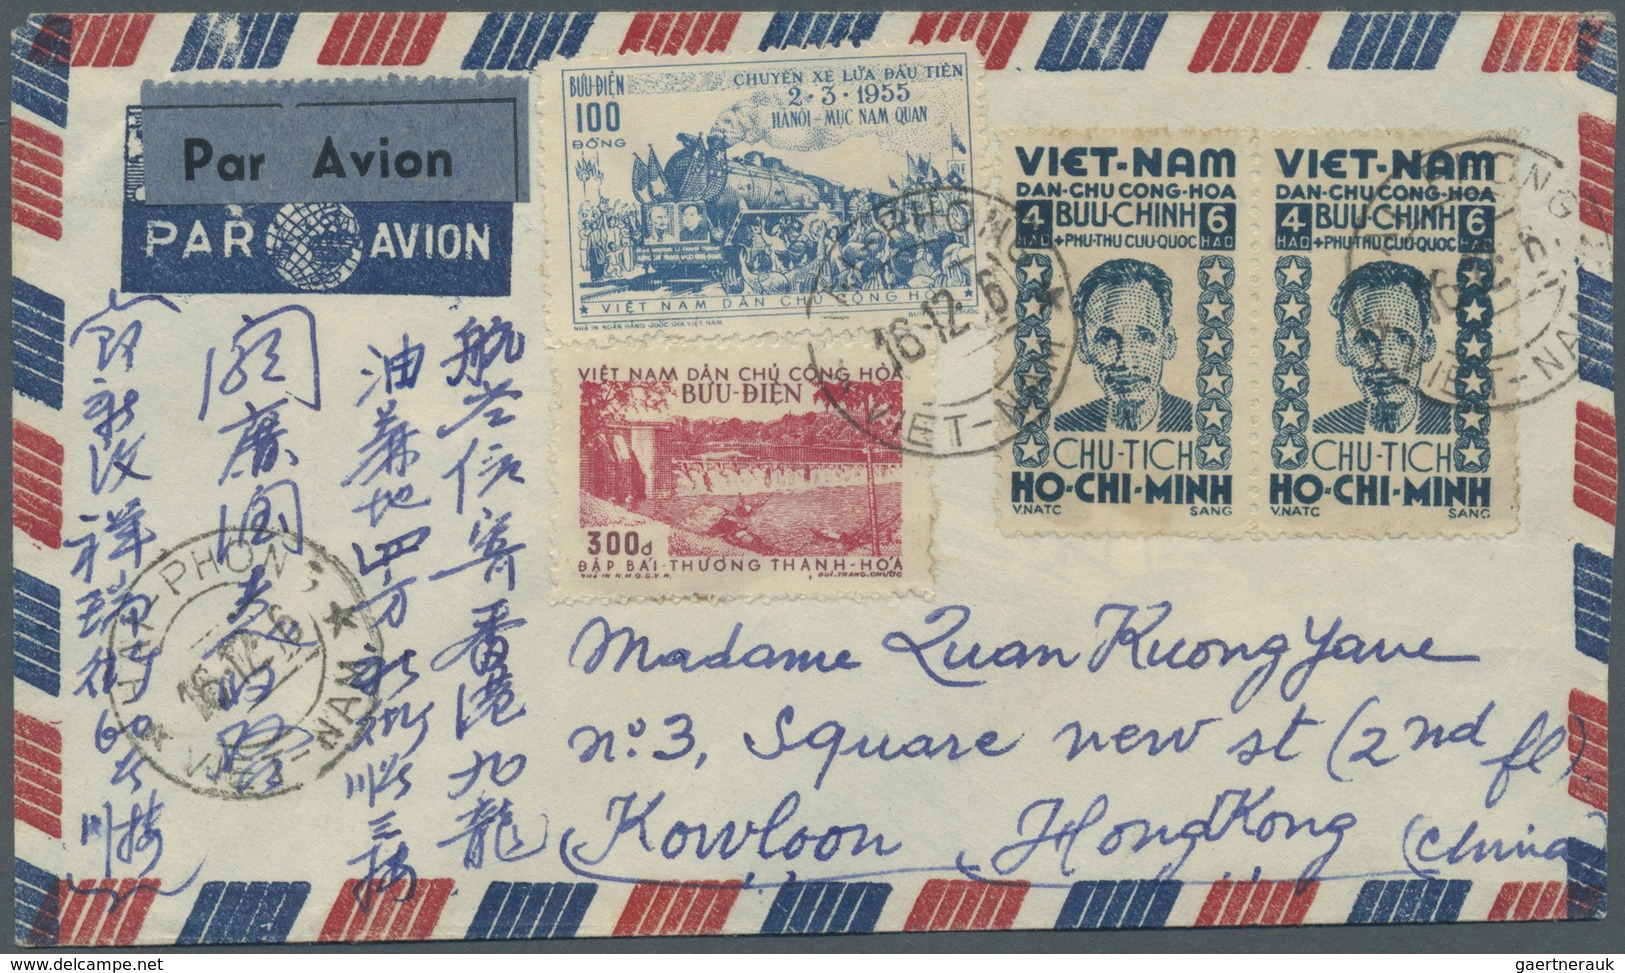 Par Avion
PAR AVION
BƯU-ĐIỆN
100
ĐỒNG
CHUYẾN XE LỬA ĐẦU TIÊN
2·3·1955
HÀNỘI - MỤC NAM QUAN
★ VIỆT NAM DÂN CHỦ CỘNG
NHÀ IN NGÂN HÀNG QUỐC GIA VIỆT NAM
VIỆT NAM DÂN CHỦ CỘNG HÒA
BƯU-ĐIỆN
300đ
ĐẬP BÁI-THƯỢNG THANH-HÓA
NHÀ IN N.H.Q.G.V.N. BÙI-TRANG-CHƯỚC
VIET-NAM
DAN-CHU CONG-HOA
4 HAO BUU-CHINH 6 HAO
+PHU-THU CUU-QUOC
CHU-TICH
HO-CHI-MINH
V.NATC SANG
VIET-NAM
DAN-CHU CONG-HOA
4 HAO BUU-CHINH 6 HAO
+PHU-THU CUU-QUOC
CHU-TICH
HO-CHI-MINH
V.NATC SANG
16.12.6
VIET-NAM
16.12.6
VIET-NAM
HAI-PHONG
16.12.6
VIET-NAM
航空信寄香港九龍
油蔴地四方新街三楼
Madame Quan Kuong Yave
nº 3, Square new st (2nd fl).
Kowloon, HongKong (China)
gaertnerauk